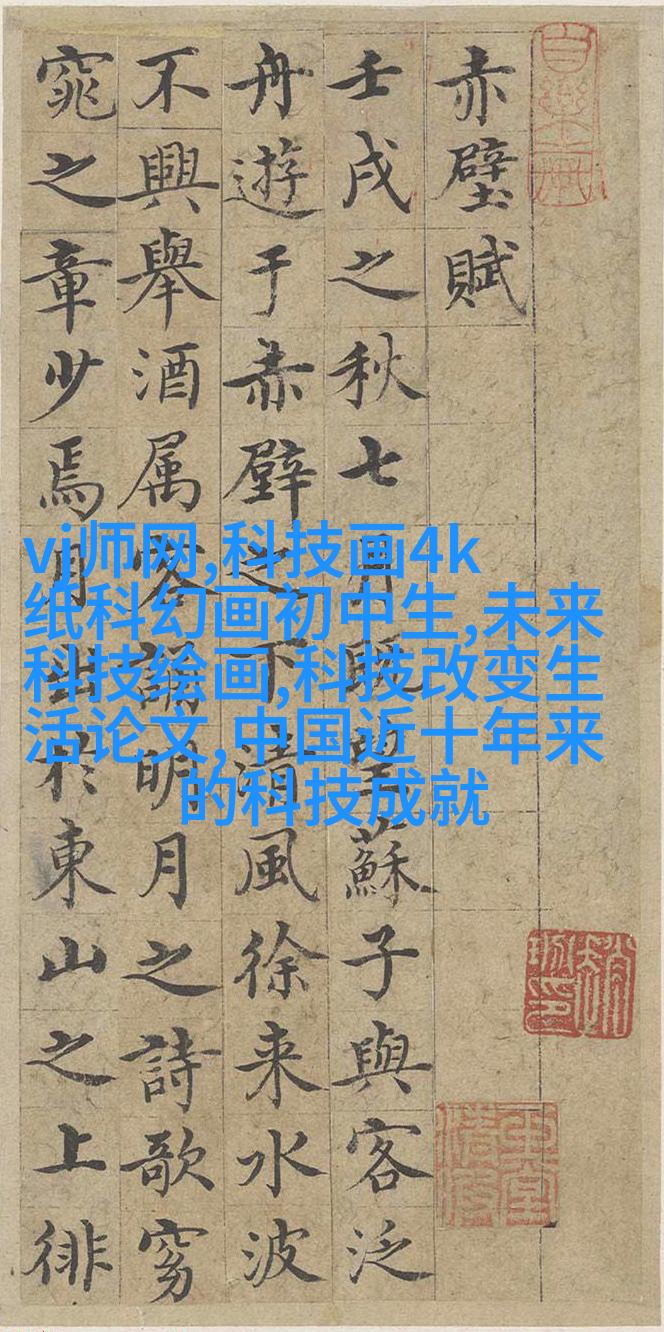 赤壁賦
壬戌之秋七月既望蘇子與客泛
舟遊于赤壁之下清風徐来水波
不興舉酒属客誦明月之詩歌窈
窕之章少焉月出於東山之上徘
vj师网,科技画4k
纸科幻画初中生,未来
科技绘画,科技改变生
活论文,中国近十年来
的科技成就